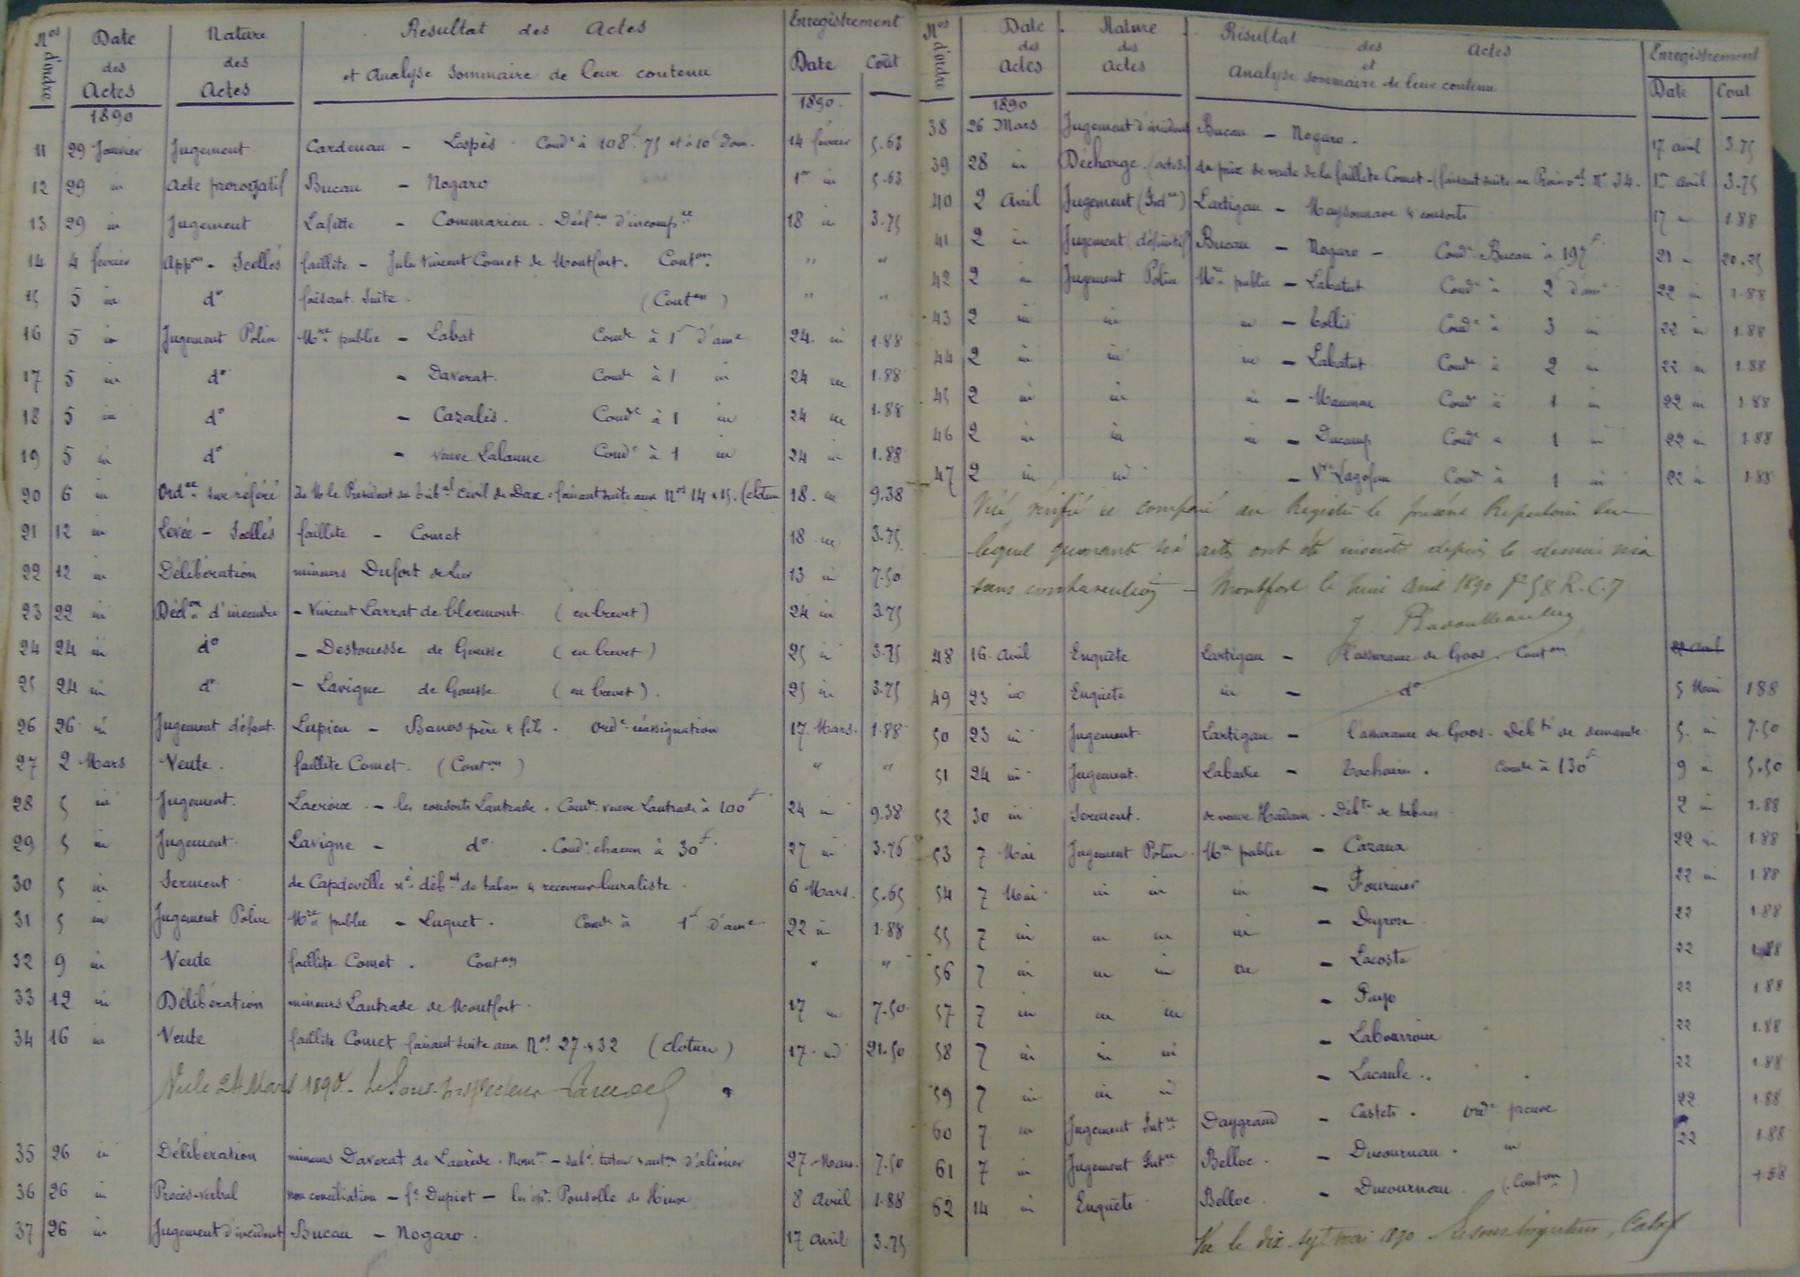 Nos d'ordre | Date des Actes | Nature des Actes | Résultat des Actes et Analyse Sommaire de leur contenu | Enregistrement Date | Coût
1890 | 1890.
11 | 29 Janvier | Jugement | Cardenau - Lespès. Condé à 108f 75 et à 10f dom. | 14 février | 5.63
12 | 29 in | Acte prorogatif | Bucau - Nogaro | 1er in | 5.63
13 | 29 in | Jugement | Lafitte - Commarieu. Déclon d'incompce | 18 in | 3.75
14 | 4 février | Appon - Scellés | faillite - Jules Vincent Comet de Montfort. Conton | " | "
15 | 5 in | do | faisant Suite. (Conton) | " | "
16 | 5 in | Jugement Police | Mre public - Labat Condé à 1f d'ame | 24 in | 1.88
17 | 5 in | do | - Daverat. Condé à 1 in | 24 in | 1.88
18 | 5 in | do | - Cazalis. Condé à 1 in | 24 in | 1.88
19 | 5 in | do | - veuve Lalanne Condé à 1 in | 24 in | 1.88
20 | 6 in | Ordce sur référé | de M. le Président du tribal Civil de Dax - faisant suite aux Nos 14 & 15. (cloture | 18. in | 9.38
21 | 12 in | Levée - Scellés | faillite - Comet | 18 in | 3.75
22 | 12 in | Délibération | mineurs Dufort de | 13 in | 7.50
23 | 22 in | Déclon d'incendie | - Vincent Larrat de Clermont (en brevet) | 24 in | 3.75
24 | 24 in | do | - Destouesse de Gousse (en brevet) | 25 in | 3.75
25 | 24 in | do | - Lavigne de Gousse (en brevet). | 25 in | 3.75
26 | 26 in | Jugement défaut. | Lupieu - Banos père & fils. Ordé réassignation | 17 Mars. | 1.88
27 | 2 Mars | Vente. | faillite Comet. (Conton) | " | "
28 | 5 in | Jugement. | Lacroix - les consorts Lautrade. Condé veuve Lautrade à 100f | 24 in | 9.38
29 | 5 in | Jugement. | Lavigne - do. Condé chacun à 30f. | 27 in | 3.76
30 | 5 in | Serment | de Capdeville débant de tabac & receveur buraliste. | 6 Mars. | 5.65
31 | 5 in | Jugement Police | Mre public - Luquet. Condé à 1f d'ame | 22 in | 1.88
32 | 9 in | Vente | faillite Comet. Conton | " | "
33 | 12 in | Délibération | mineurs Lautrade de Montfort. | 17 in | 7.50
34 | 16 in | Vente | faillite Comet faisant suite aux Nos 27 & 32 (cloture) | 17 in | 21.50
Vu le 24 Mars 1890. Le Sous-Inspecteur
35 | 26 in | Délibération | mineurs Daverat de Laurède. Nomon - subé tuteur & auton d'aliéner | 27 Mars. | 7.50
36 | 26 in | Procès-verbal | non conciliation - fs Dupiot - les Pouselle de Hinx | 8 Avril | 1.88
37 | 26 in | Jugement d'incident | Bucau - Nogaro. | 17 Avril | 3.75
Nos d'ordre | Date des Actes | Nature des Actes | Résultat des Actes et Analyse sommaire de leur contenu | Enregistrement Date | Cout
1890
38 | 26 Mars | Jugement d'incident | Bucau - Nogaro. | 17 avril | 3.75
39 | 28 in | Décharge (acte de) | du prix de vente de la faillite Comet - (faisant suite au No 34. | 1er avril | 3.75
40 | 2 Avril | Jugement | Lartigau - Maysonnave & consorts | 17 " | 1.88
41 | 2 in | Jugement définitif | Bucau - Nogaro - Condé Bucau à 195f | 21 " | 20.25
42 | 2 in | Jugement Police | Mre public - Labatut Condé à 2f d'am | 22 in | 1.88
43 | 2 in | in | in - Tollis Condé à 3 in | 22 in | 1.88
44 | 2 in | in | in - Labatut Condé à 2 in | 22 in | 1.88
45 | 2 in | in | in - Maumau Condé à 1 in | 22 in | 1.88
46 | 2 in | in | in - Ducamp Condé à 1 in | 22 in | 1.88
47 | 2 in | in | - Vve Condé à 1 in | 22 in | 1.88
Visé, vérifié et comparé au Registre le présent Repertoire sur
lequel quarante sept actes ont été inscrits depuis le dernier visa
sans contravention - Montfort le avril 1890 fo 58 R. C. 7
48 | 16. Avril | Enquête | Lartigau - l'assurance de Goos. Conton | 22 avril
49 | 23 in | Enquête | in - do | 5 Mai | 1.88
50 | 23 in | Jugement. | Lartigau - l'assurance de Goos. Débté de demande. | 5. in | 7.50
51 | 24 in | Jugement. | Labadie - Tachoires. Condé à 130f | 9 in | 5.50
52 | 30 in | Serment. | de veuve Débte de tabac. | 2 in | 1.88
53 | 7 Mai | Jugement Police. | Mre public - Cazaux | 22 in | 1.88
54 | 7 Mai | in in | in - Fournier | 22 in | 1.88
55 | 7 in | in in | in - Duprou | 22 | 1.88
56 | 7 in | in in | in - Lacoste | 22 | 1.88
57 | 7 in | in in | - Puyo | 22 | 1.88
58 | 7 in | in in | - Labourroire | 22 | 1.88
59 | 7 in | in in | - Lacaule. | 22 | 1.88
60 | 7 in | Jugement Intre | Daygrand - Castets. Ordé preuve | 22 | 1.88
61 | 7 in | Jugement Intre | Belloc. - Ducournau. in | 22 | 1.88
62 | 14 in | Enquête | Belloc. - Ducournau. (Conton)
Vu le dix sept mai 1890 Le sous Inspecteur,